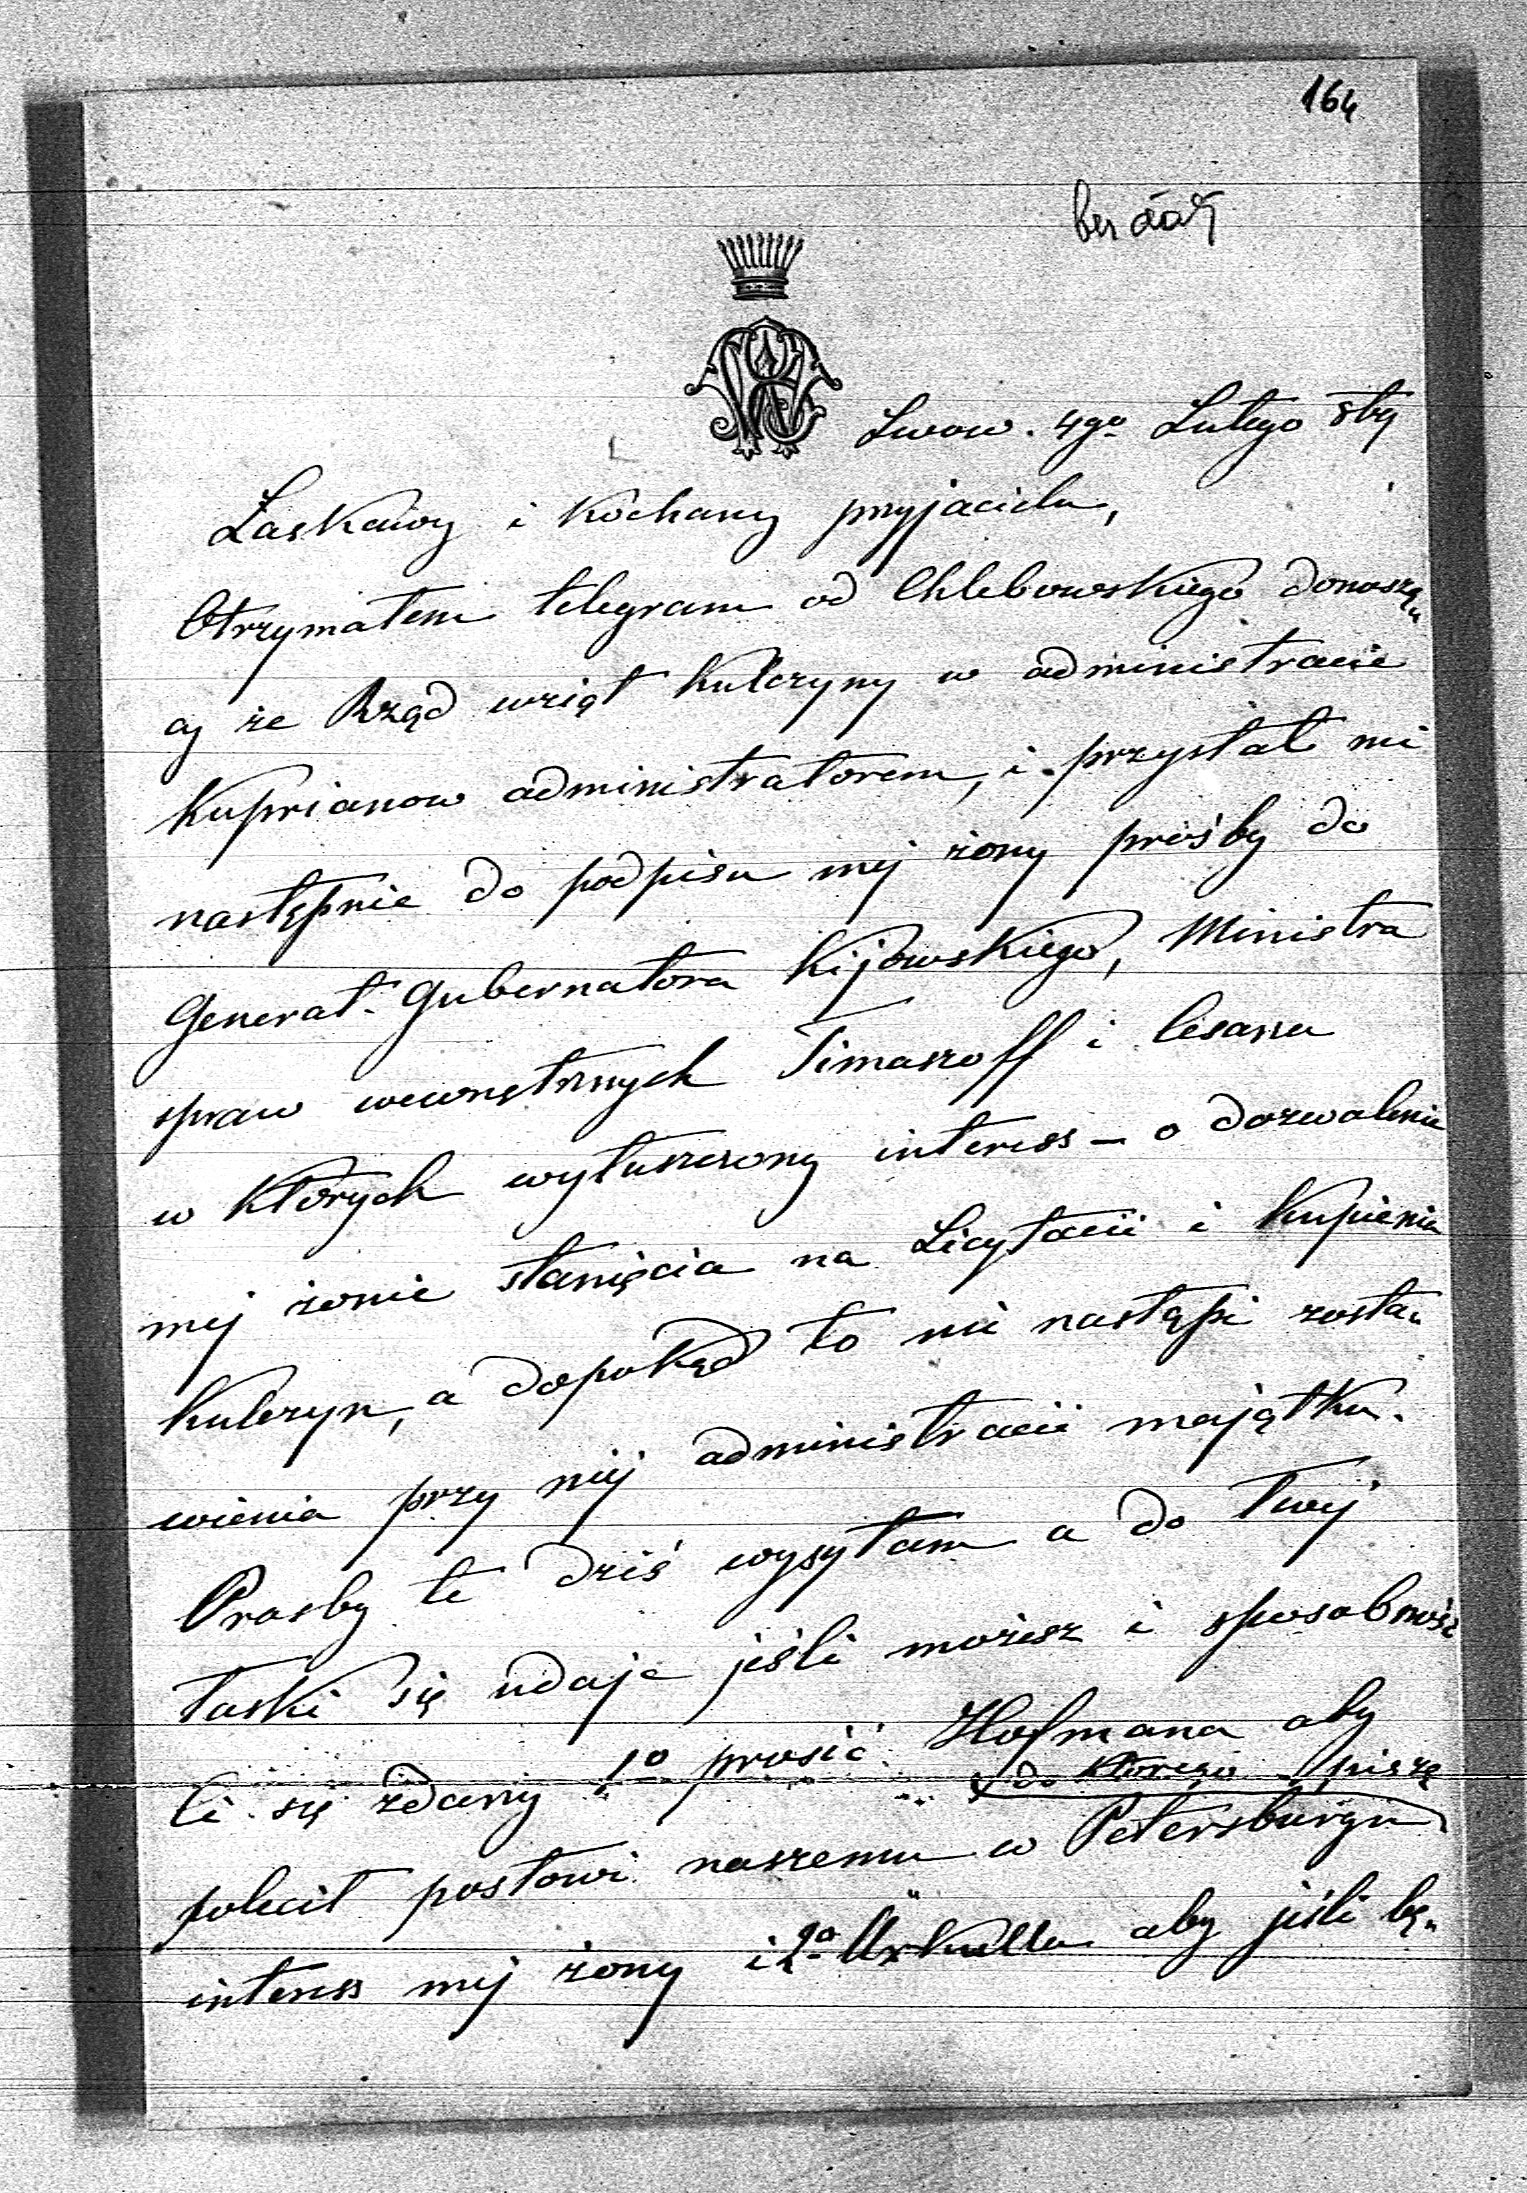 164
bez daty
Lwow. 4go Lutego
Łaskawy i kochany przyjacielu,
Otrzymałem telegram od Chlebowskiego donoszą„
cy że Rząd wziął Kulczyny w administracie
Kuprianow administratorem, i przysłał mi
następnie do podpisu mej żony prośby do
Generał-Gubernatora Kijowskiego, Ministra
spraw wewnętrznych Timaszoff i Cesarza
w których wyłuszczony interess — o dozwolenie
mej żonie stanięcia na Licytacii i kupienia
Kulczyn, a dopokąd to nie nastąpi zosta„
wienia przy niej administracii majątku.
Prosby te dziś wysyłam a do Twej
łaski się udaje jeśli możesz i sposobność
Ci się zdarzy 1o prosić Hofmana aby
do którego piszę
polecił posłowi naszemu w Petersburgu
interess mej żony i 2o aby jeśli bę„